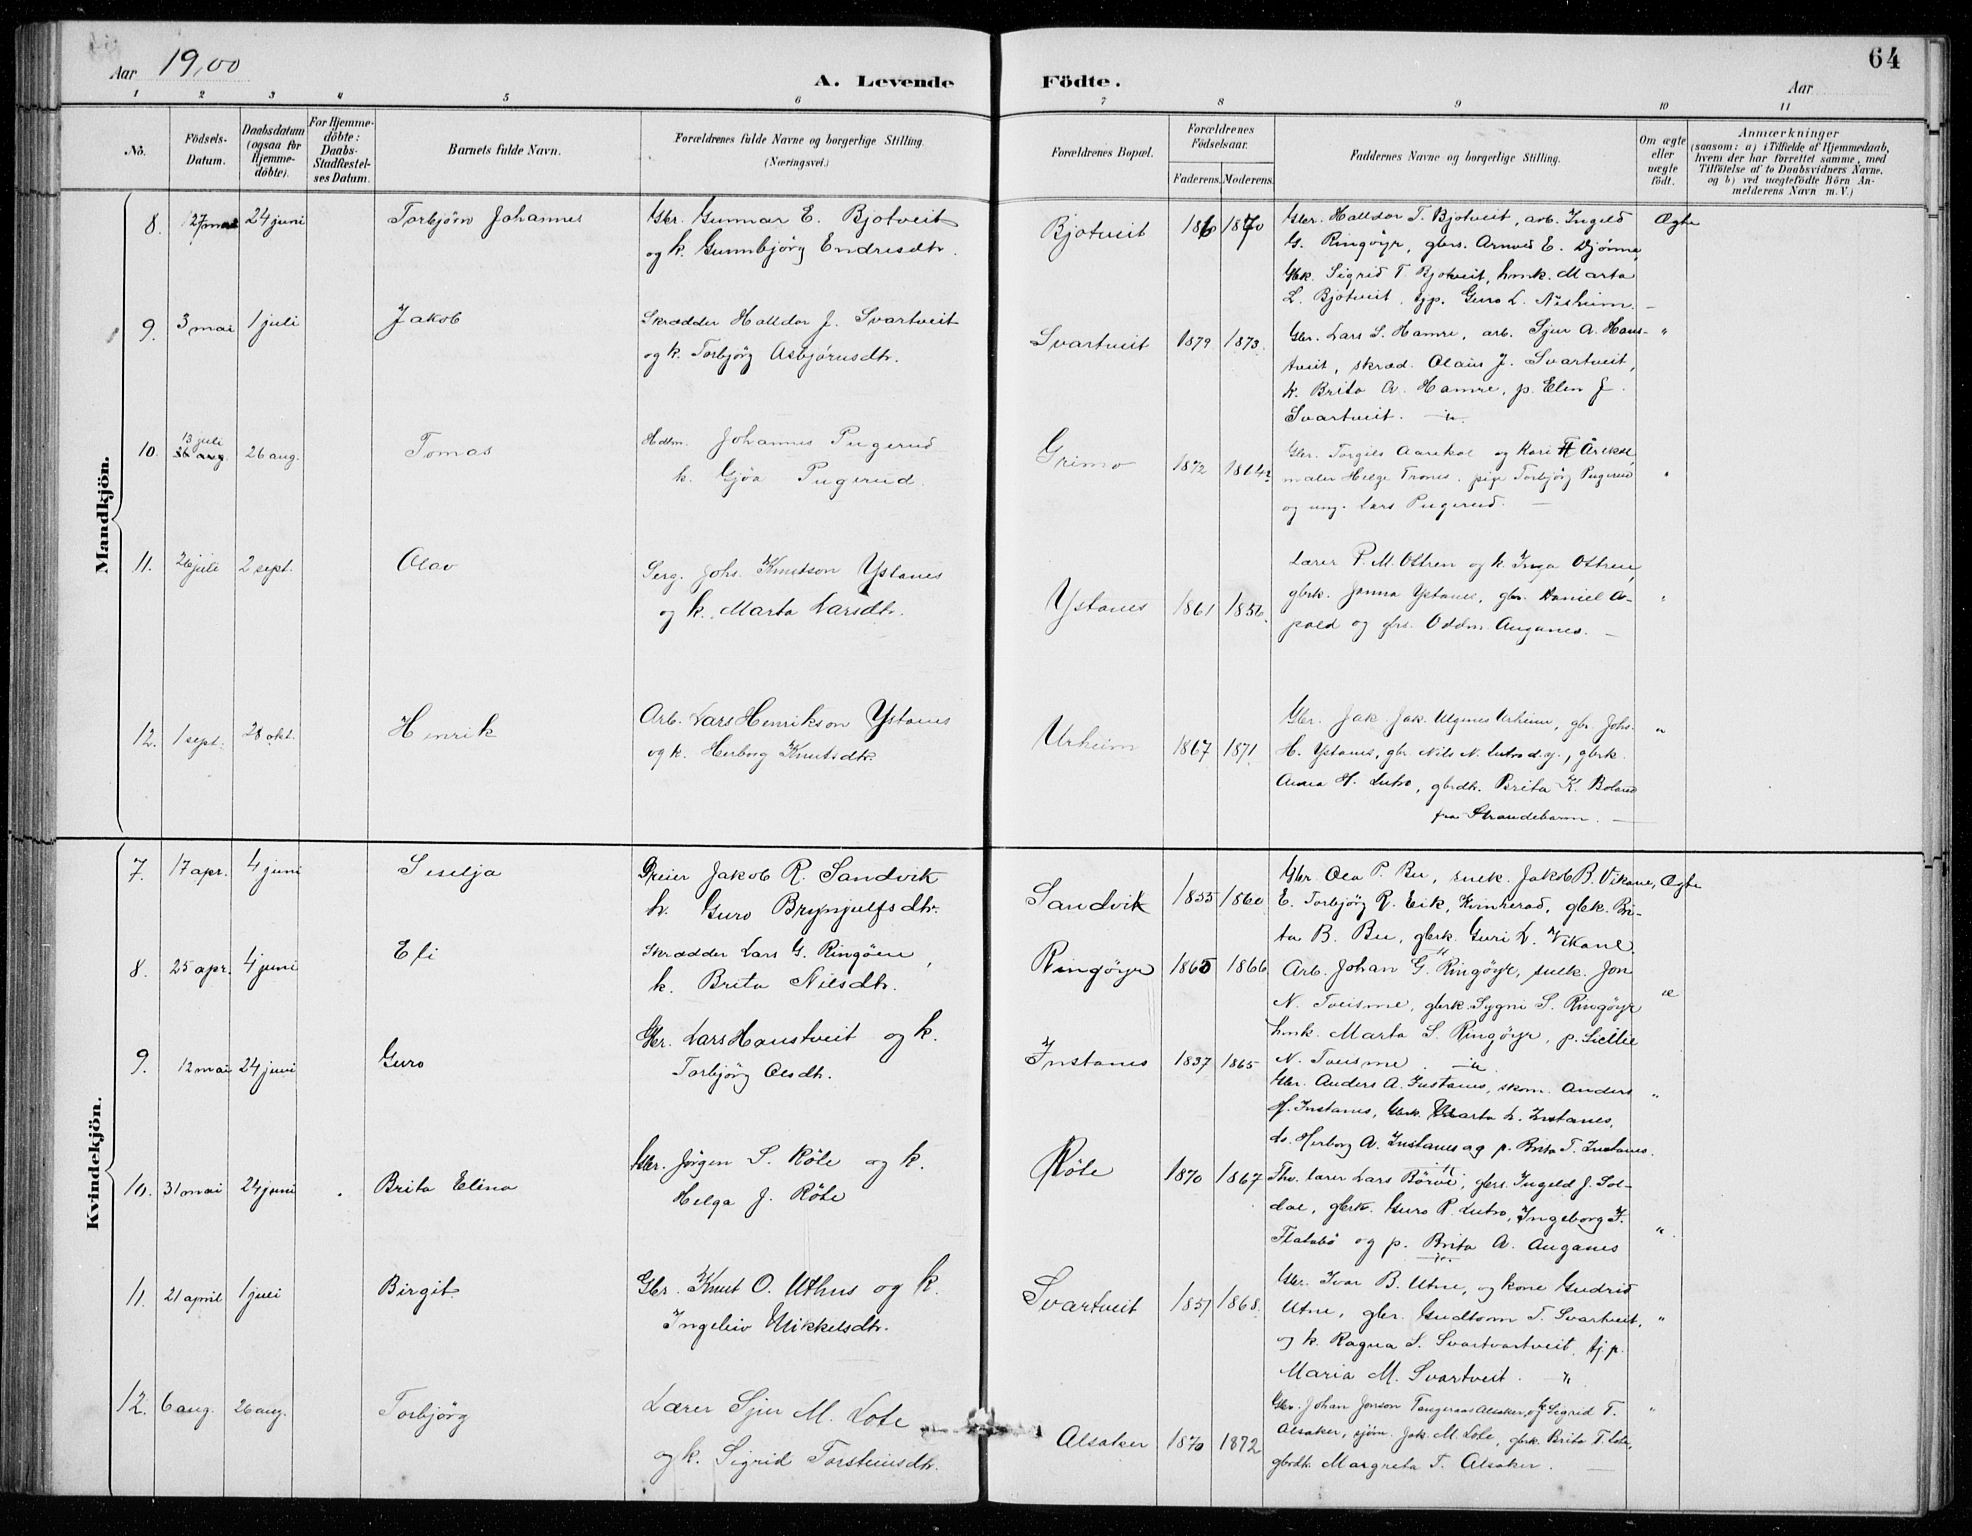 64
Aar 1900
A. Levende Födte.
Aar
1 2 3 4 5 6 7 8 9 10 11
No.
Födsels-Datum.
Daabsdatum (ogsaa for Hjemme-döbte).
For Hjemme-döbte: Daabs-Stadfæstel-ses Datum.
Barnets fulde Navn.
Forældrenes fulde Navne og borgerlige Stilling. (Næringsvei.)
Forældrenes Bopæl.
Forældrenes Födselsaar.
Faderens. Moderens.
Faddernes Navne og borgerlige Stilling.
Om ægte eller uægte födt.
Anmærkninger
(saasom: a) i Tilfælde af Hjemmedaab, hvem der har forrettet samme, med Tilföielse af to Daabsvidners Navne. og b) ved uægtefödte Börn An-melderens Navn m. V.)
Mandkjön.
8. 27 mai 24 juni Torbjörn Johannes
Gbr. Gunnar E. Bjotveit
og k. Gunnbjörg Endresdtr.
Bjotveit 1870
Gbr. Halldor T. Bjotveit, arb. Ingeld
G. Ringöyr, gbrs. Arnvid E. Djönne,
Gbk. Sigrid T. Bjotveit, hmk. Marta
L. Bjotveit, tjp. Guro L. Nesheim.
Ægte
9. 3 mai 1 juli Jakob
Skrædder Halldor J. Svartveit
og k. Torbjörg Asbjörnsdtr.
Svartveit 1879 1873.
Gbr. Lars S. Hamre, arb. Sjur A. Haus-
tveit, skræd. Olaus J. Svartveit,
k. Brita A. Hamre, p. Elen J.
Svartveit.
"
10. 13 juli 26 aug. Tomas
Hdlm. Johannes Pugerud
k. Gjöa Pugerud.
Grimo 1872 1864
Gbr. Torgils Aarekol og Kari Årekol,
maler Helge Trones, pige Torbjörg Pugerud
og ung. Lars Pugerud.
"
11. 26 juli 2 sept. Olav
Serg. Johs. Knutson Ystanes
og k. Marta Larsdtr.
Ystanes 1861 1856.
Lærer P. M. Ostren og k. Inga Ostren,
gbrk. Janna Ystanes, gbr. Daniel A-
pold og gbs. Oddm. Auganes.
"
12. 1 sept. 28 okt. Henrik
Arb. Lars Henrikson Ystanes
og k. Herborg Knutsdtr.
Urheim 1867 1871
Gbr. Jak. Jak. Ulgenes Urheim, gbr. Johs.
H. Ystanes, gbr. Nils N. Lutro d.y., gbrk.
Anna H. Lutro, gbrdtr. Brita K. Boland
fra Strandebarm.
"
Kvindekjön.
7. 17 apr. 4 juni Seselja
Jakob R. Sandvik
k. Guro Brynjulfsdtr.
Sandvik 1855 1860
Gbr. Ola P. Bu, snek. Jakob B. Vikane,
E. Torbjörg R. Eik, Kvinherad, gbrk. Bri-
ta B. Bu, gbrk. Guri L. Vikane.
Ægte
8. 25 apr. 4 juni Eli
Skrædder Lars G. Ringöen,
k. Brita Nilsdtr.
Ringöyr 1865 1866
Arb. Johan G. Ringöyr, snek. Jon
N. Tveisme, gbrk. Sygni S. Ringöyr
hmk. Marta S. Ringöyr, p.
N. Tveisme
9. 12 mai 24 juni Guro
Gbr. Lars Haustveit og k.
Torbjörg Olsdtr.
Instanes 1837 1865
Gbr. Anders A. Instanes, skom. Anders
H. Instanes, Gbrk. Marta L. Instanes,
do. Herborg A. Instanes og p. Brita T. Instanes.
"
10. 31 mai 24 juni Brita Elina
Gbr. Jörgen S. Röte og k.
Helga J. Röte
Röte 1870 1867
Fhv. lærer Lars Börve, gbrs. Ingeld J. Sol-
dal, gbrk. Guro R. Lutro, Ingeborg J.
Flatabö og p. Brita A. Auganes
"
11. 21 april 1 juli Birgit
Gbr. Knut O. Uthus og k.
Ingeleiv Mikkelsdtr.
Svartveit 1857 1868.
Gbr. Ivar B. Utne, og kone Gudrid
Utne, gbr. Gudtorm T. Svartveit,
og k. Ragna S. Svartvartveit, tj.p.
Maria M. Svartveit.
"
12. 6 aug. 26 aug. Torbjörg
Lærer Sjur M. Lote
og k. Sigrid Torsteinsdtr.
Alsaker 1870 1872
Gbr. Johan Jonson Tangeraas Alsaker, og k. Sigrid T.
Alsaker, sjöm. Jak. M. Lote, gbrk. Brita T. Lote,
gbrdtr. Margreta T. Alsaker.
"